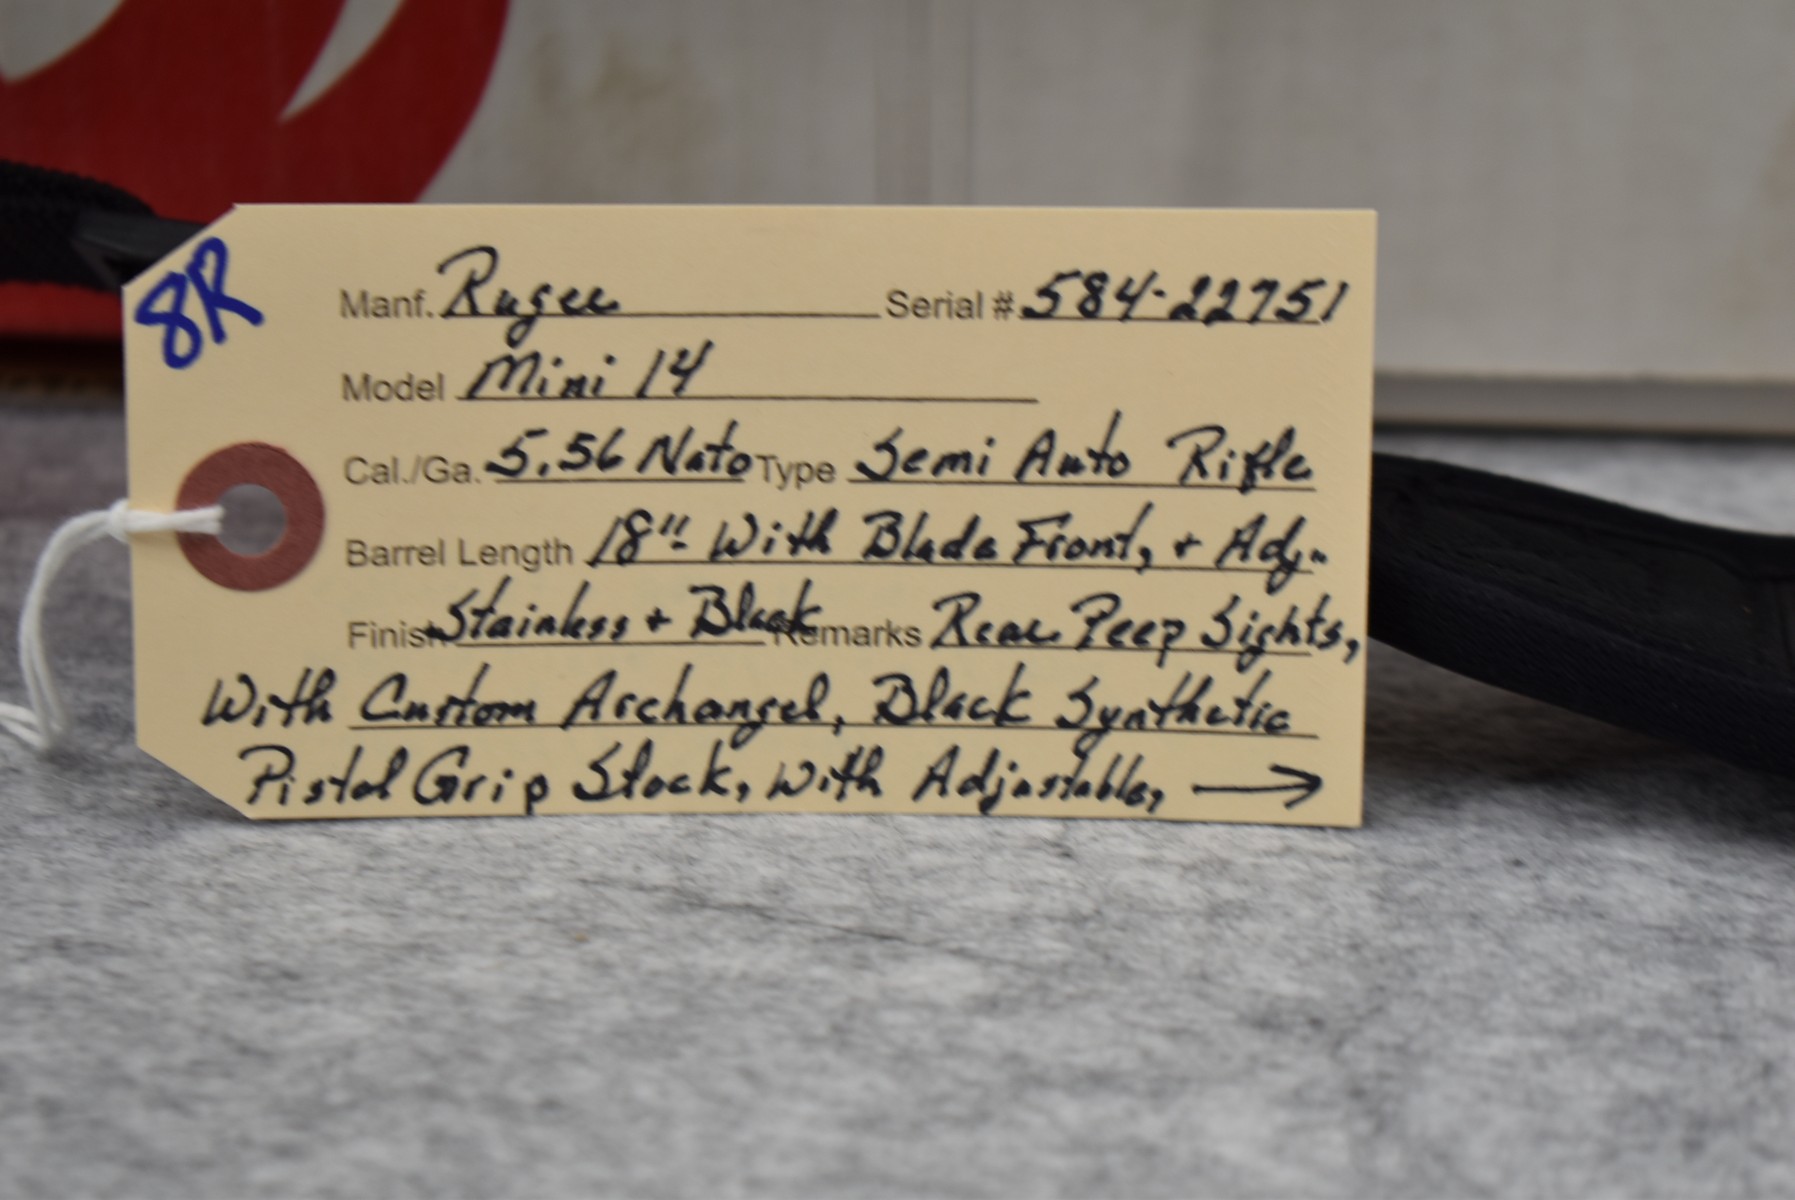 8R
Manf. Ruger Serial # 584-22751
Model Mini 14
Cal./Ga. 5.56 Nato Type Semi Auto Rifle
Barrel Length 18" With Blade Front, + Adj.
Finish Stainless + Black Remarks Rear Peep Sights,
With Custom Archangel, Black Synthetic
Pistol Grip Stock, With Adjustable, →